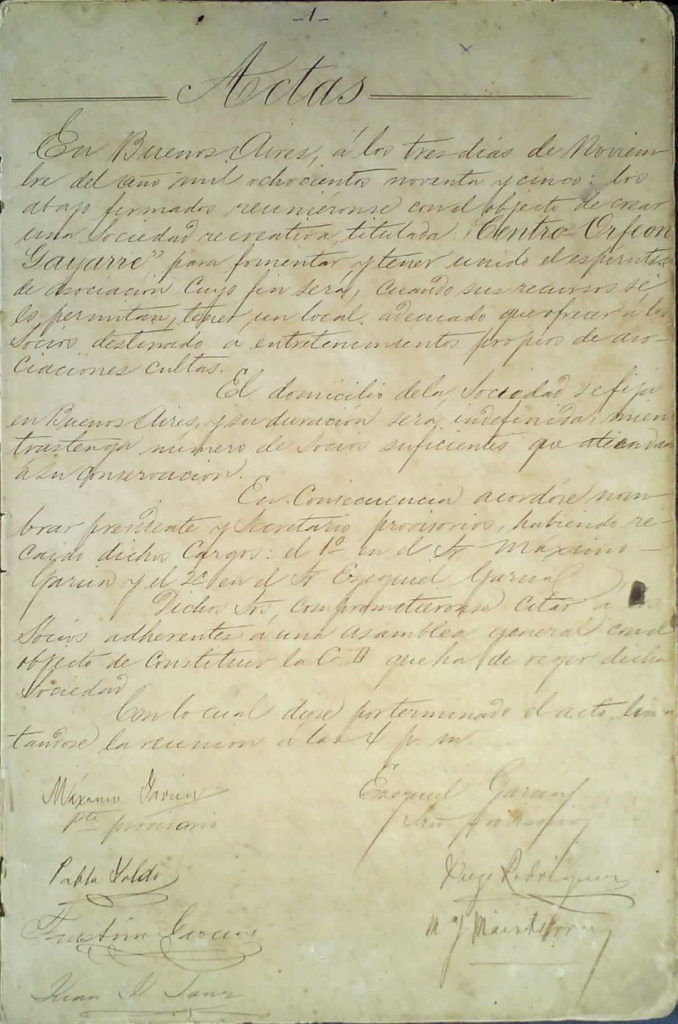 -1-
Actas
En Buenos Aires, á los tres dias de Noviem-
bre del año mil ochocientos noventa y cinco: los
abajo firmados reuniéronse con el objecto de crear
una Sociedad recreativa, titulada "Centro-Orfeon
Gayarre" para fomentar y tener unido el espiritu
de asociacion cuyo fin será, cuando sus recursos se
lo permitan, tener un local adecuado que ofrecer á los
Socios destinado a entretenimientos propios de aso-
ciaciones cultas.
El domicilio de la Sociedad se fija
en Buenos Aires, y su duracion será indefinida, mien-
tras tenga número de Socios suficientes que atiendan
a su conservacion.
En Consecuencia acordóse nom-
brar presidente y Secretario provisorios, habiendo re-
caydo dichos Cargos: el 1º en el Sr Máximo
Garcia y el 2º en el Sr Ezequiel Garcia
Dichos Srs, comprometieronse citar a los
Socios adherentes á una asamblea general con el
objecto de Constituir la C D que ha de regir dicha
Sociedad
Con lo cual diose por terminado el acto, levan
tandose la reunion á las 4 p. m.
Máximo Garcia
Pte provisorio
Ezequiel Garcia
Srio provisorio
Pablo
Diego Rodriguez
Faustino Garcia
M J
Juan Sanz